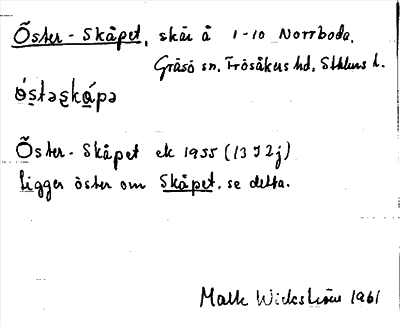 Öster-Skåpet, skär å 1-10 Norrboda.
Gräsö sn, Frösåkers hd, Sthlms l.
ǿstəskápə
Öster-Skåpet ek 1955 (13J2j)
ligger öster om Skåpet, se detta.
Wickström 1961